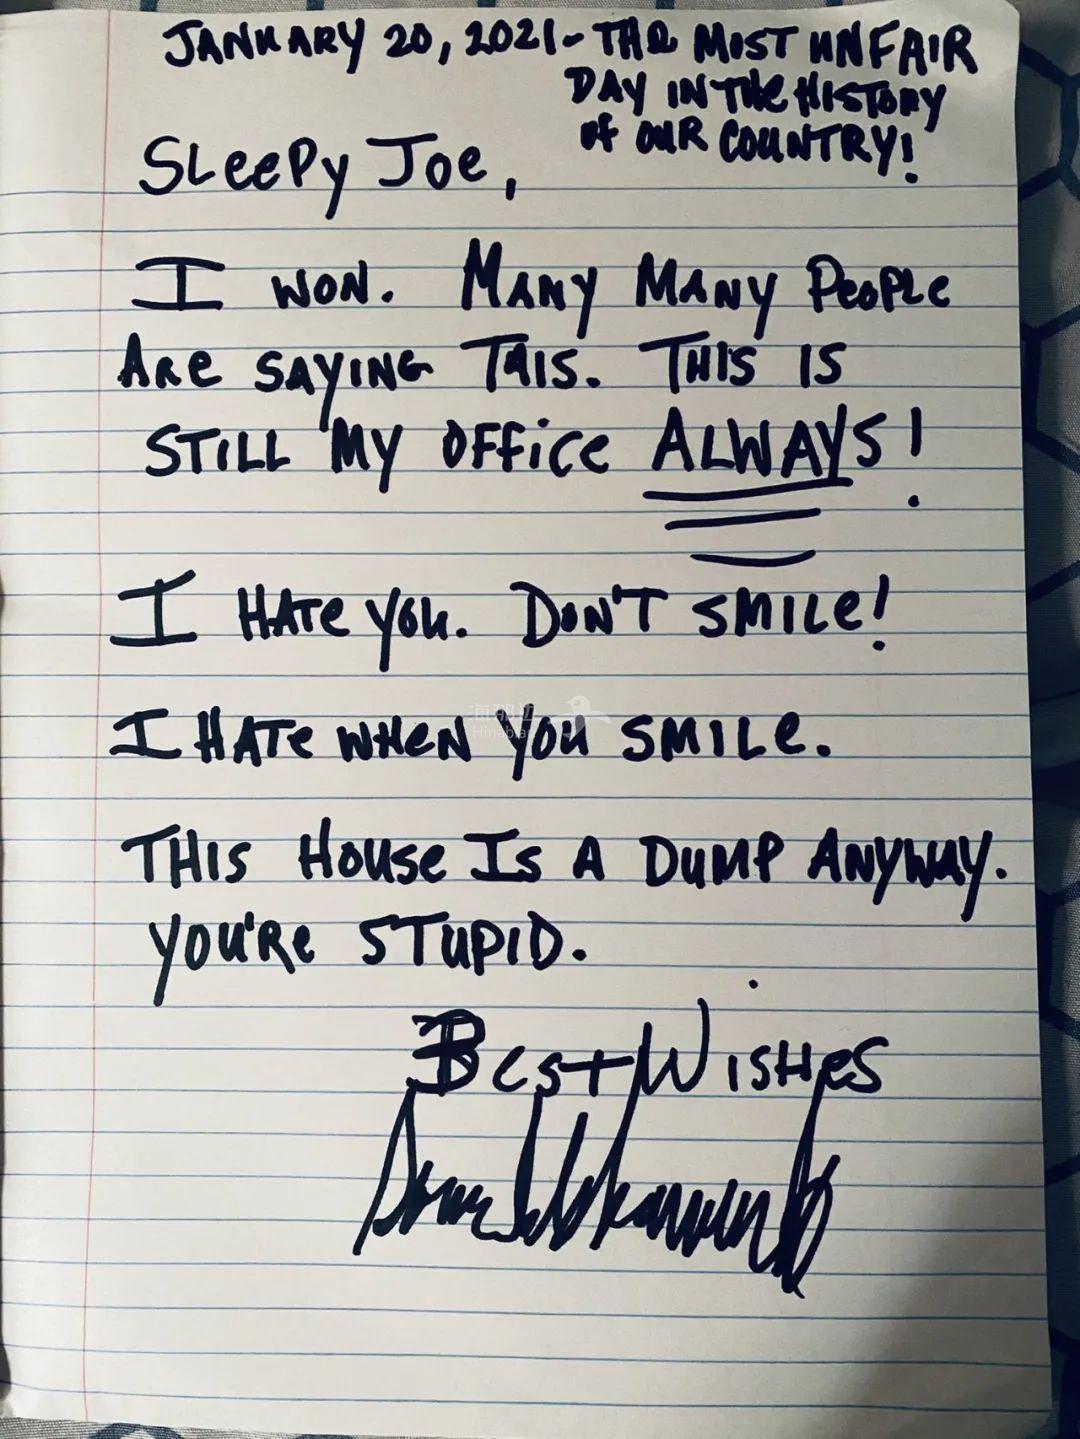 JANUARY 20, 2021 - THE MOST UNFAIR
DAY IN THE HISTORY
OF OUR COUNTRY!
SLeePy JOe,
I WON. MANY MANY PeOPLe
ARe SAYING THIS. THIS IS
STILL MY OFFice ALWAYS!
I HATe YOU. DON'T SMILe!
I HATe WHeN YOU SMILe.
海那边
Hinabian
THIS HOUSe IS A DUMP ANYWAY.
YOU'Re STUPID.
Best WISHeS